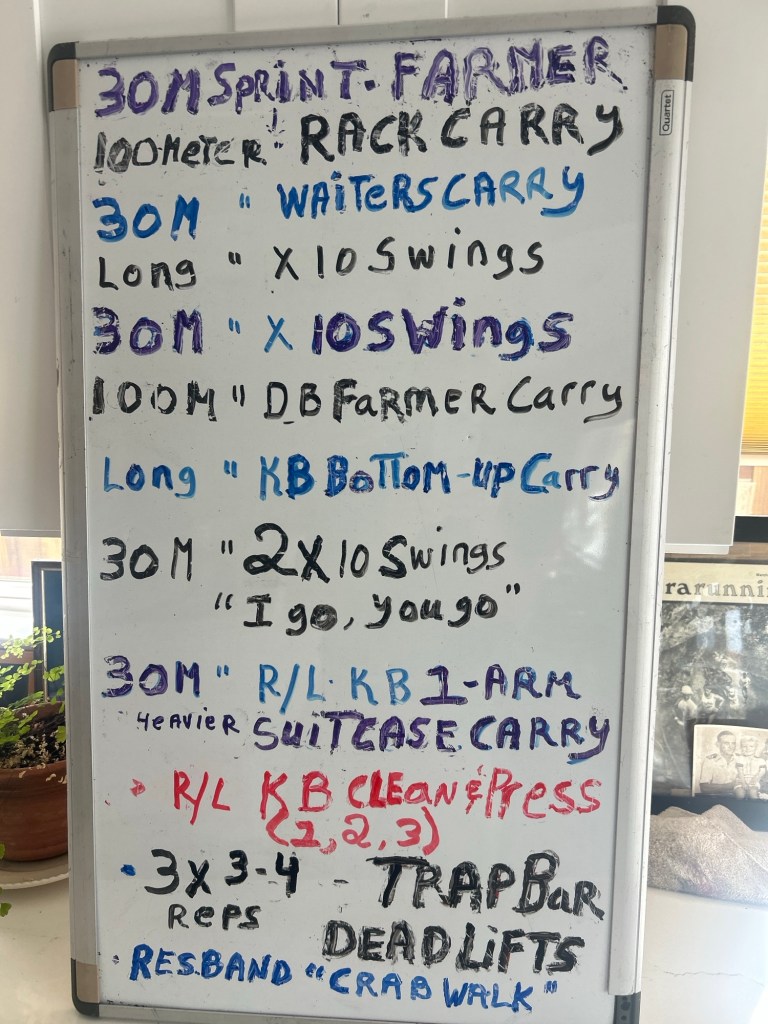 30M SPRINT. FARMER
100 METER " RACK CARRY
30M " WAITERS CARRY
Long " X 10 Swings
30M " X 10 SWings
100M " DB FARMER Carry
Long " KB BOTTOM-UP Carry
30M " 2X10 Swings
"I go, you go"
30M " R/L. KB 1-ARM
HEAVIER SUITCASE CARRY
R/L KB CLEan & Press
(1, 2, 3)
3X 3-4 - TRAP Bar
Reps DEADLIFTS
RES.BAND "CRAB WALK"
Quartet
rarunni